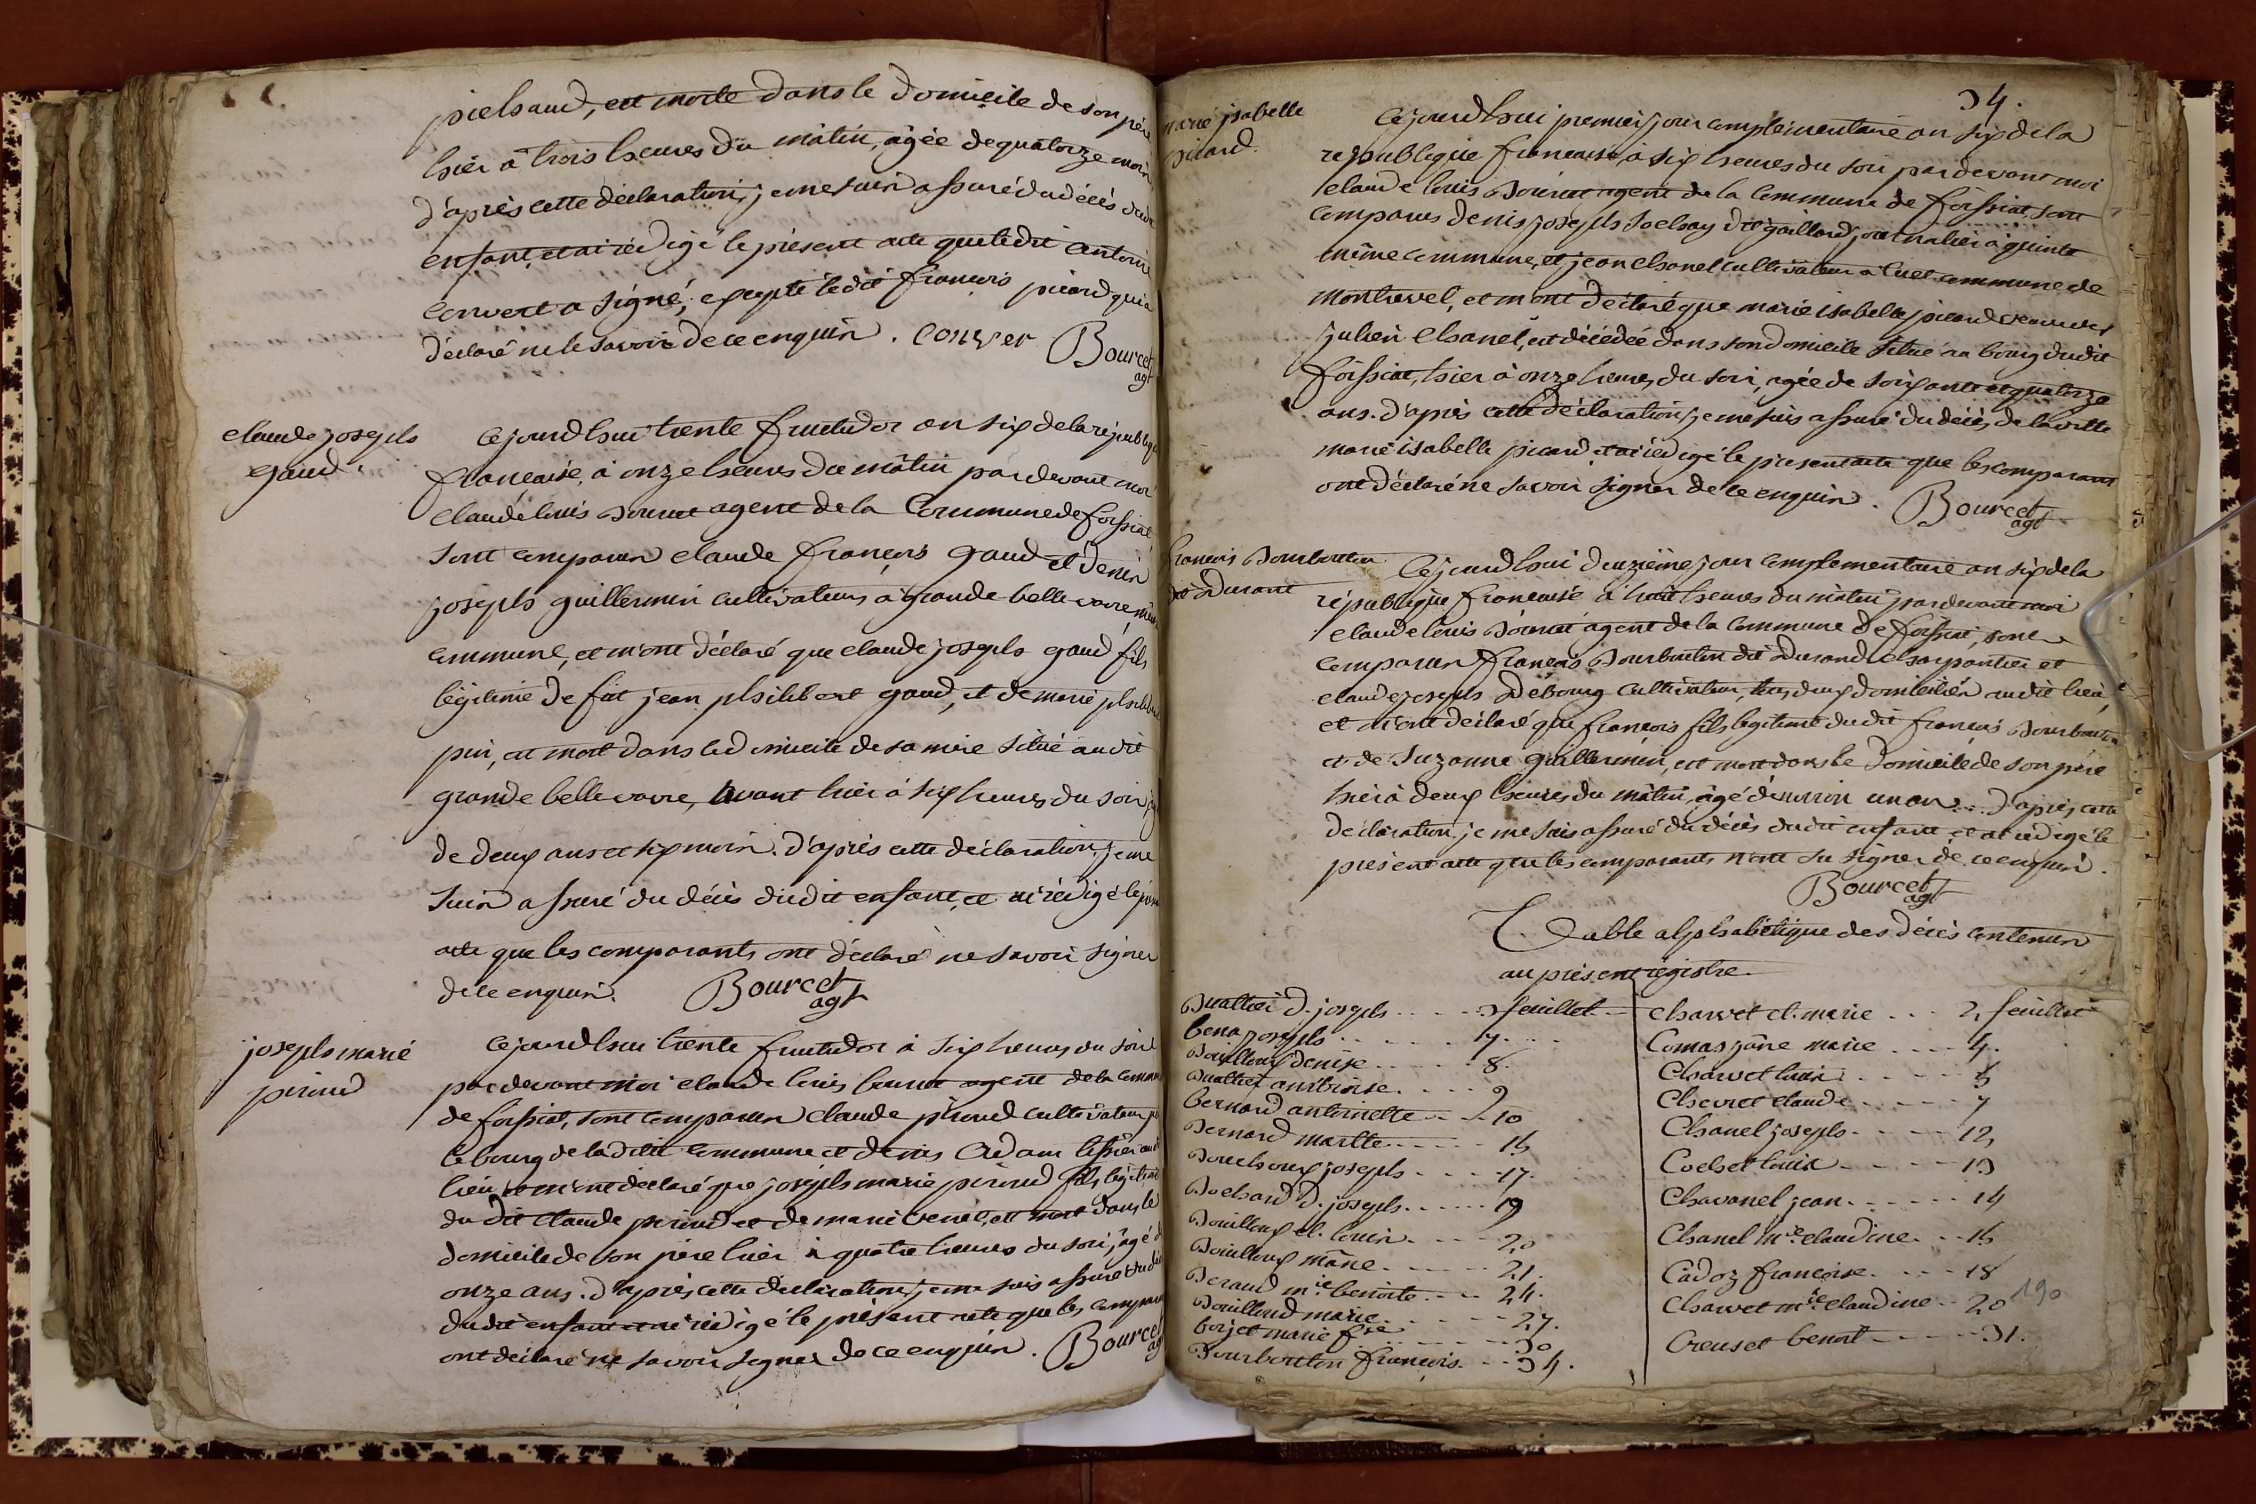 pichaud, est morte dans le domicile de son père
hier à trois heures du matin, âgée de quatorze mois
d'après cette déclaration, je me suis assuré du décès dudit
enfant, et ai rédigé le présent acte que ledit antoine
convert a signé, excepté ledit françois picard qui a
déclaré ne le savoir de ce enquis. conver Bourcet
agt
claude joseph
gaud.
Cejourd'hui trente fructidor an six de la républiq
francaise, à onze heures du mâtin par devant moi
Claude louis Bourcet agent de la Commune de foissiat,
sont comparus claude françois gaud et denis
joseph guillermin cultivateurs à grande belle vavre, même
commune, et m'ont déclaré que claude joseph gaud fils
légitime de fût jean philibert gaud, et de marie philib
pin, est mort dans le domicile de sa mère situé audit
grande belle vavre, avant hier à six heures du soir, âgé
de deux ans et six mois. d'après cette déclaration, je me
suis assuré du décès dudit enfant, et ai rédigé le prése
acte que les comparants ont déclaré ne savoir signer
de ce enquis. Bourcet
agt
joseph marie
piroud
Cejourd'hui trente fructidor à six heures du soir
par devant moi claude louis bourcet agent de la commune
de foissiat, sont comparus claude piroud cultivateur
le bourg de ladite commune et denis Adam tissier audit
lieu et m'ont déclaré que joseph marie piroud fils légitime
du dit Claude piroud et de marie est mort dans le
domicile de son père hier à quatre heures du soir, âgé d
onze ans. d'après cette déclaration, je me suis assuré du décès
dudit enfant et ai rédigé le présent acte que les comparants
ont déclaré ne savoir signer de ce enquis. Bourcet
ag
34.
marie isabelle
picard.
Cejourd'hui premier jour complémentaire an six de la
republique francaise, à six heures du soir par devant moi
claude louis Bourcet agent de la Commune de foissiat, sont
comparus denis joseph dit gaillard journalier à quinte
même commune, et jean chanel cultivateur à Cuet commune de
montrevel, et m'ont déclaré que marie isabelle picard veuve de
julien Chanel, est décédée dans son domicile situé au bourg dudit
foissiat, hier à onze heures du soir, agée de soixante et quatorze
ans. d'après cette déclaration, je me suis assuré du décès de ladite
marie isabelle picard, et ai rédigé le présent acte que les comparants
ont déclaré ne savoir signer de ce enquis. Bourcet
agt
francois Bourbouton
dit Durand
Cejourd'hui deuxième jour complementaire an six de la
république francaise à huit heures du mâtin par devant moi
claude louis Bourcet agent de la Commune de foissiat, sont
comparus françois Bourbouton dit Durand charpantier et
claude joseph Debourg cultivateur, tous deux domiciliés audit lieu,
et m'ont déclaré que françois fils légitime dudit françois Bourbouton
et de Suzanne guillermin, est mort dans le domicile de son père
hier à deux heures du mâtin, âgé d'environ un an... d'après cette
déclaration, je me suis assuré du décès dudit enfant et ai rédigé le
présent acte que les comparants n'ont su signer de ce enquis.
Bourcet
agt
Table alphabétique des décès contenus
au présent régistre.
Buathier d. joseph .... 3 feuillet
bena joseph ...... 7....
Bouilloux denise ..... 8.
Buathier ambroise ..... 9
bernard antoinette .... 10
Bernard marthe ..... 15
Bouchoux joseph .... 17.
Bochard D. joseph ..... 19
Bouilloux cl. louis .... 20
Bouilloux marie ..... 21.
Beraud m.ie benoite .... 24.
Bouilloud marie ..... 27.
borjet marie f.se ..... 30
Bourbouton françois ... 34.
Charvet cl. marie ... 2, feuillet
Comas marie .... 4.
Charvet louis ..... 5
Chevret claude ..... 7
Chanel joseph ..... 12,
Cochet louis ..... 13
Chavanel jean ...... 14
Chanel m.ie claudine ... 15
Cadoz françoise .... 18
Charvet m.ie claudine .. 20
190
Creuset benoit ..... 31.